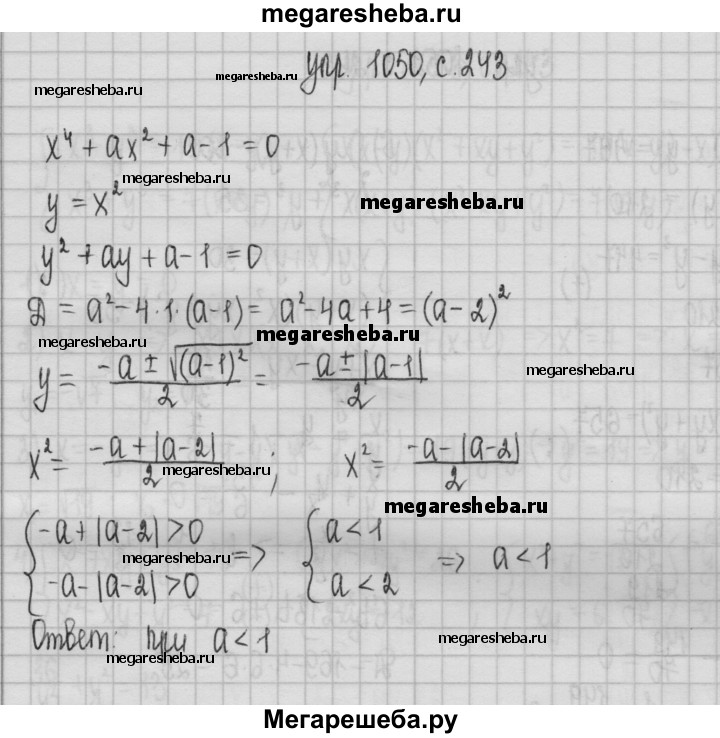 megaresheba.ru
упр. 1050, с. 243
megaresheba.ru
megaresheba.ru
x⁴ + ax² + a - 1 = 0
megaresheba.ru
y = x²
megaresheba.ru
y² + ay + a - 1 = 0
Д = a² - 4·1·(a-1) = a² - 4a + 4 = (a-2)²
megaresheba.ru
megaresheba.ru
y = (-a ± √(a-1)²)/2 = (-a ± |a-1|)/2
megaresheba.ru
x² = (-a + |a-2|)/2 ; x² = (-a - |a-2|)/2
megaresheba.ru
megaresheba.ru
{ -a + |a-2| > 0 { a < 1
megaresheba.ru => => a < 1
-a - |a-2| > 0 a < 2
Ответ: при a < 1
megaresheba.ru
megaresheba.ru
Мегарешеба.ру